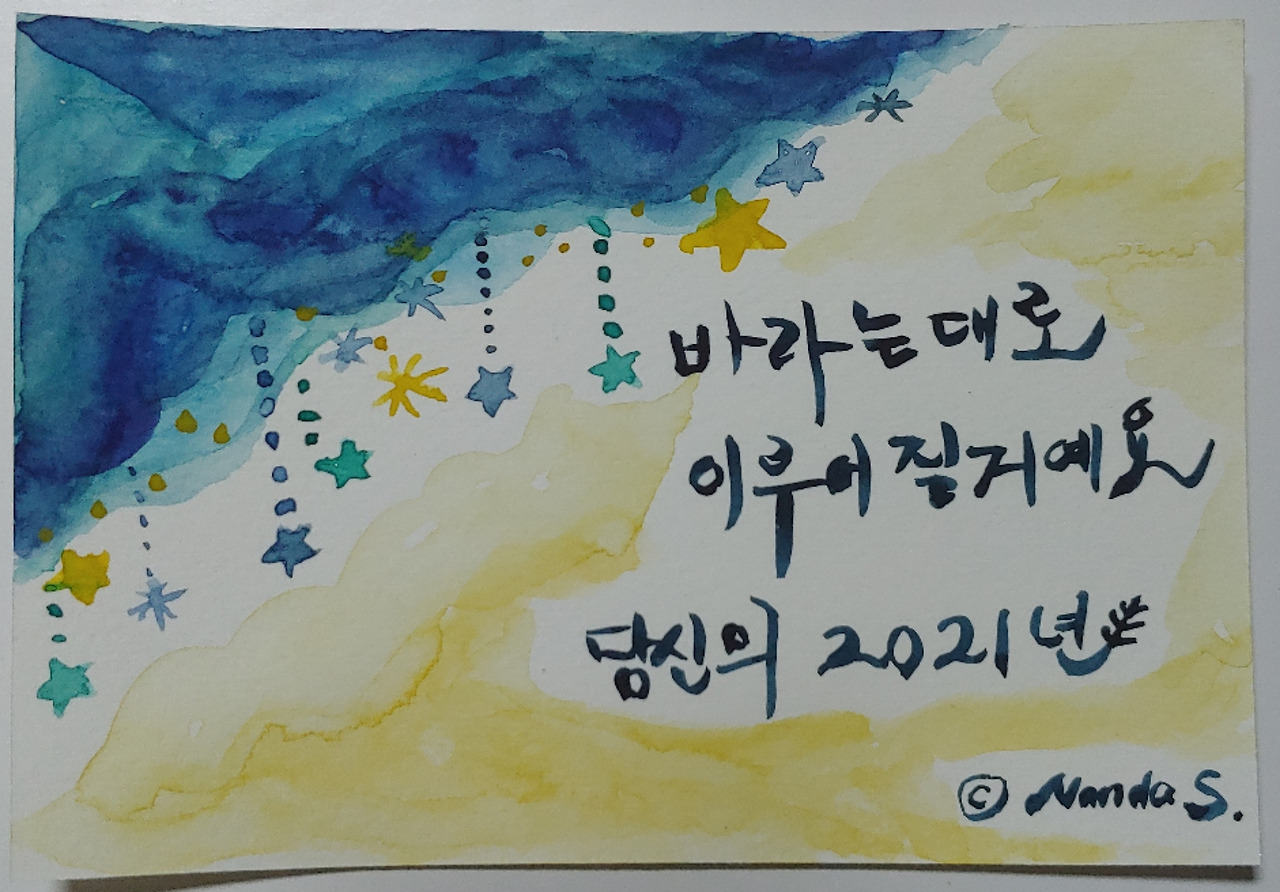 바라는대로
이루어질거예요
당신의 2021년
© Nanda S.